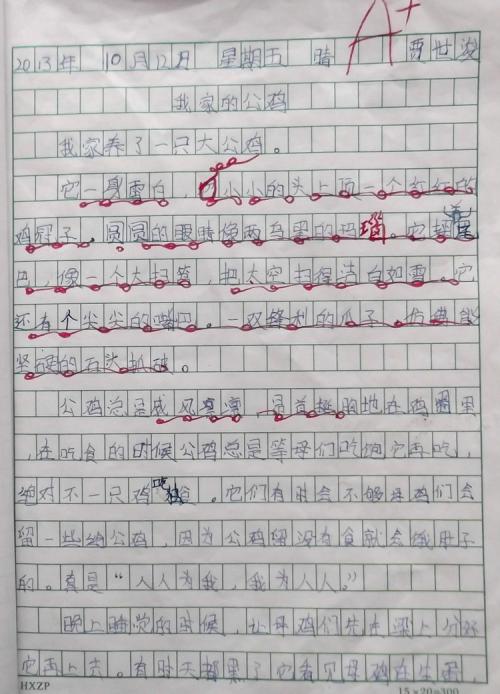 A+
2013年 10月12月 星期五 晴 贾世浚
我家的公鸡
我家养了一只大公鸡。
它一身雪白，小小的头上顶一个红红的
鸡冠子，圆圆的眼睛像两黑的玛瑙。它
巴，像一个大扫帚，把太空扫得洁白如雪。它
还有个尖尖的嘴巴。一双锋利的爪子，能
坚硬的石头抓破。
公鸡总是威风凛凛，昂首挺胸地在鸡里
，在吃食的时候公鸡总是等母们吃饱它再吃，
绝对不一只鸡吃。它们有时会不够母鸡们会
留一些给公鸡，因为公鸡留没有食就会饿肚子
的。真是“人人为我，我为人人。”
晚上睡觉的时候，让母鸡们先上分好
它再上去。有时天都黑了它看见母鸡在生蛋，
HXZP
15×20=300